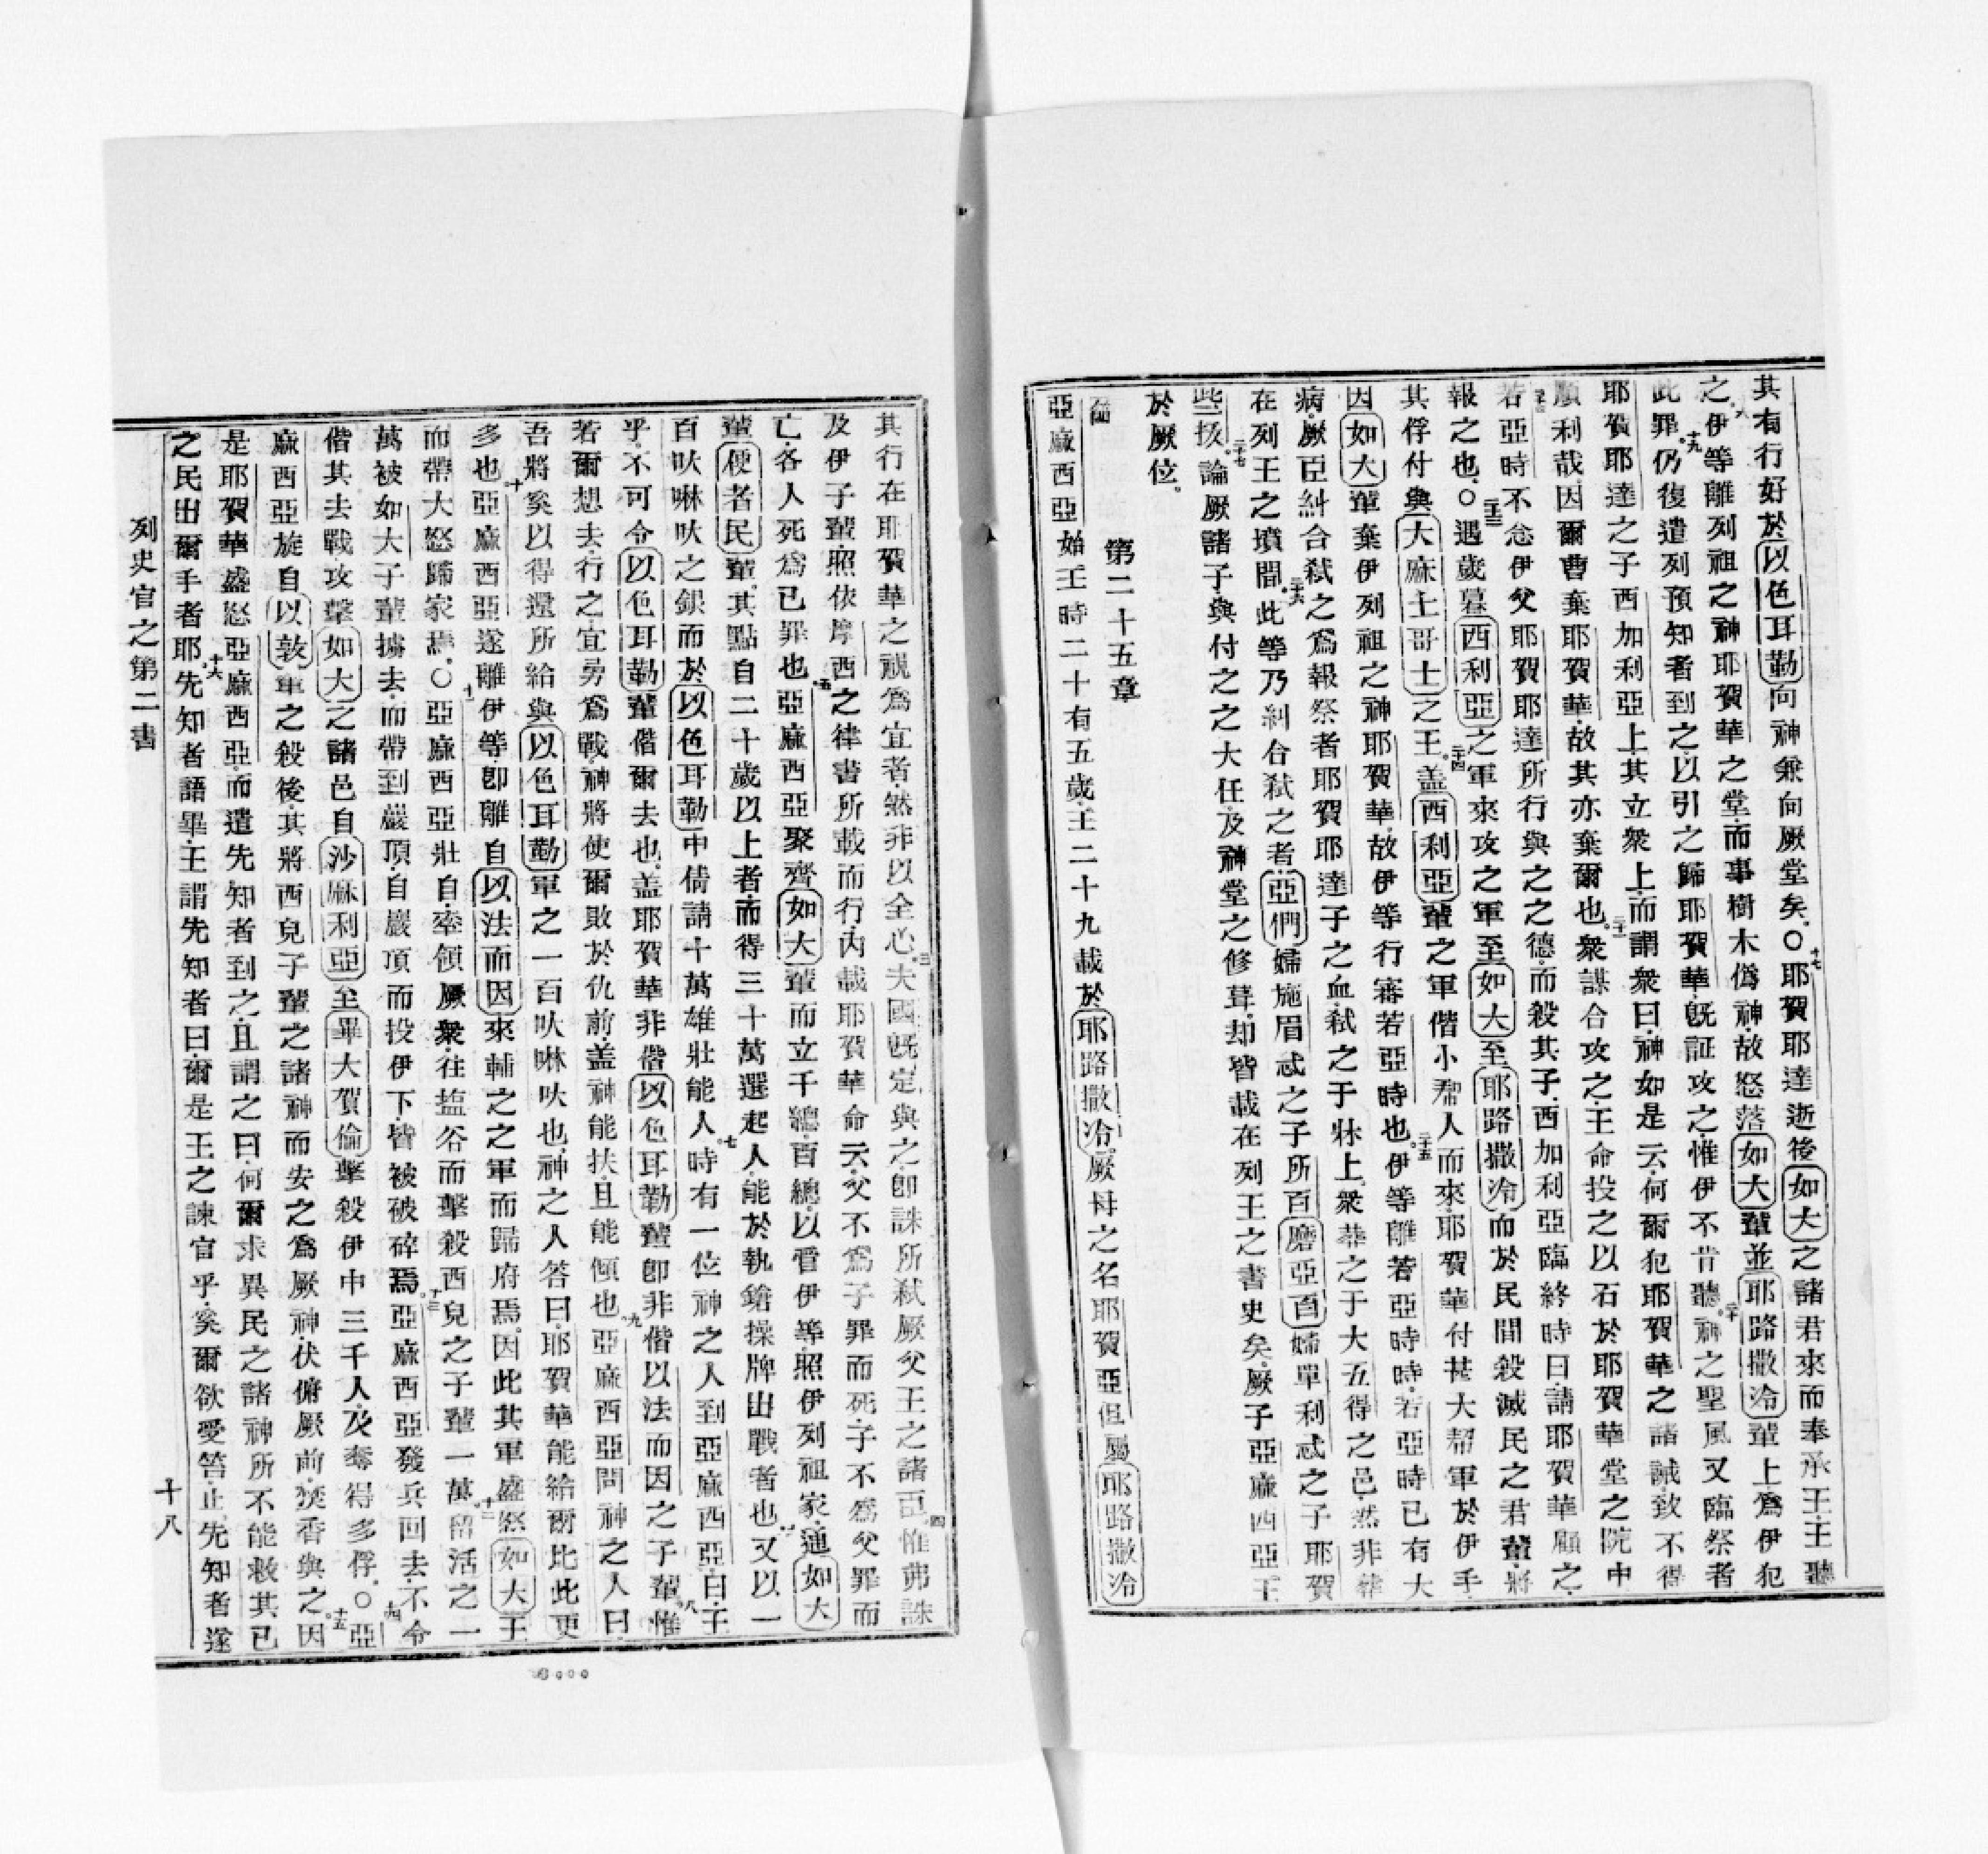 其有行好於以色耳勒向神兼向厥堂矣○十七耶賀耶達逝後如大之諸君來而奉承王王聽
之十八伊等離列祖之神耶賀華之堂而事樹木僞神故怒落如大輩並耶路撒冷輩上爲伊犯
此罪十九仍復遣列預知者到之以引之歸耶賀華旣証攻之惟伊不肯聽二十神之聖風又臨祭者
耶賀耶達之子西加利亞上其立衆上而謂衆曰神如是云何爾犯耶賀華之諸誡致不得
順利哉因爾曹棄耶賀華故其亦棄爾也二十一衆謀合攻之王命投之以石於耶賀華堂之院中
二十二若亞時不念伊父耶賀耶達所行與之之德而殺其子西加利亞臨終時曰請耶賀華顧之
報之也○二十三遇歲暮西利亞之軍來攻之軍至如大至耶路撒冷而於民間殺滅民之君輩將
其俘付與大麻士哥士之王二十四盖西利亞輩之軍偕小帮人而來耶賀華付甚大帮軍於伊手
因如大輩棄伊列祖之神耶賀華故伊等行審若亞時也二十五伊等離若亞時時若亞時已有大
病厥臣糾合弑之爲報祭者耶賀耶達子之血弑之于牀上衆葬之于大五得之邑然非葬
在列王之墳間二十六此等乃糾合弑之者亞們婦施眉忒之子所百磨亞百婦單利忒之子耶賀
些拔二十七論厥諸子與付之之大任及神堂之修葺却皆載在列王之書史矣厥子亞麻西亞王
於厥位
第二十五章
亞麻西亞始王時二十有五歲王二十九載於耶路撒冷厥母之名耶賀亞但屬耶路撒冷
其行在耶賀華之視爲宜者然非以全心三夫國旣定與之卽誅所弑厥父王之諸臣四惟弗誅
及伊子輩照依摩西之律書所載而行內載耶賀華命云父不爲子罪而死子不爲父罪而
亡各人死爲已罪也五亞麻西亞聚齊如大輩而立千總百總以管伊等照伊列祖家通如大
輩便者民輩其點自二十歲以上者而得三十萬選起人能於執鎗操牌出戰者也六又以一
百吠啉吠之銀而於以色耳勒中倩請十萬雄壯能人七時有一位神之人到亞麻西亞曰王
乎不可令以色耳勒輩偕爾去也盖耶賀華非偕以色耳勒輩卽非偕以法而因之子輩八惟
若爾想去行之宜勇爲戰神將使爾敗於仇前盖神能扶且能傾也九亞麻西亞問神之人曰
吾將奚以得還所給與以色耳勒軍之一百吠啉吠也神之人答曰耶賀華能給爾比此更
多也十亞麻西亞遂離伊等卽離自以法而因來輔之之軍而歸府焉因此其軍盛怒如大王
而帶大怒歸家焉○十一亞麻西亞壯自率領厥衆往塩谷而擊殺西兒之子輩一萬十二留活之一
萬被如大子輩擄去而帶到巖頂自巖頂而投伊下皆被破碎焉十三亞麻西亞發兵回去不令
偕其去戰攻擊如大之諸邑自沙麻利亞至畢大賀倫擊殺伊中三千人及奪得多俘○十四亞
麻西亞旋自以敦軍之殺後其將西兒子輩之諸神而安之爲厥神伏俯厥前焚香與之十五因
是耶賀華盛怒亞麻西亞而遣先知者到之且謂之曰何爾求異民之諸神所不能救其已
之民出爾手者耶十六先知者語畢王謂先知者曰爾是王之諫官乎奚爾欲受笞止先知者遂
列史官之第二書
十八